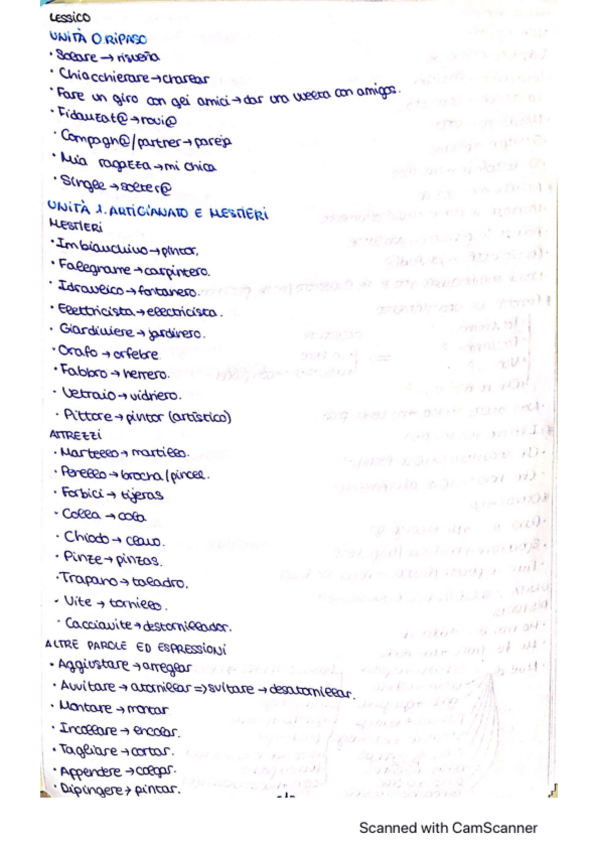 LESSICO
UNITÀ 0. RIPASO
· Solare → risueña
· Chiacchierare → charlar
· Fare un giro con gei amici → dar una vuelta con amigos.
· Fidanzat@ → novi@
· Compagn@/partner → pareja
· Mia ragazza → mi chica
· Single → solter@
UNITÀ 1. ARTIGIANATO E MESTIERI
MESTIERI
· Imbianchino → pintor.
· Falegname → carpintero.
· Idraulico → fontanero.
· Elettricista → electricista.
· Giardiniere → jardinero.
· Orafo → orfebre
· Fabbro → herrero.
· Vetraio → vidriero.
· Pittore → pintor (artístico)
ATTREZZI
· Martello → martillo.
· Penello → brocha/pincel.
· Forbici → tijeras
· Colla → cola
· Chiodo → clavo.
· Pinze → pinzas.
· Trapano → taladro.
· Vite → tornillo.
· Cacciavite → destornillador.
ALTRE PAROLE ED ESPRESSIONI
· Aggiustare → arreglar
· Avvitare → atornillar => svitare → desatornillar.
· Montare → montar
· Incollare → encolar.
· Tagliare → cortar.
· Appendere → colgar.
· Dipingere → pintar.
-1-
Scanned with CamScanner